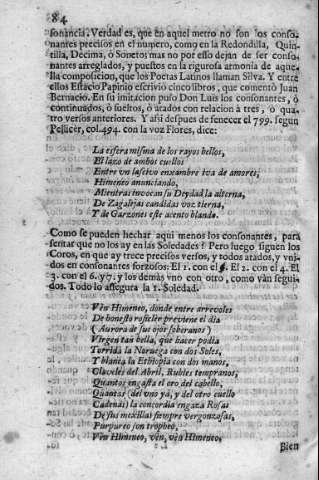 84
sonancia. Verdad es, que en aquel metro no son los conso-
nantes precisos en el numero, como en la Redondilla, Quin-
tilla, Decima, ò Soneto; mas no por esso dejan de ser conso-
nantes arreglados, y puestos en la rigurosa armonia de aque-
lla composicion, que los Poetas Latinos llaman Silva. Y entre
ellos Estacio Papinio escrivio cinco libros, que comentò Juan
Bernacio. En su imitacion puso Don Luis los consonantes, ò
continuados, ò sueltos, ò atados con relacion à tres, ò qua-
tro versos anteriores. Y assi despues de fenecer el 799. segun
Pellicer, col. 494. con la voz Flores, dice:
La esfera misma de los rayos bellos,
El lazo de ambos cuellos
Entre un lascivo enxambre iva de amores,
Himeneo anunciando,
Mientras invocan su Deydad la alterna,
De Zagalejas candidas voz tierna,
Y de Garzones este acento blando.
Como se pueden hechar aqui menos los consonantes, para
sentar que no los ay en las Soledades? Pero luego siguen los
Coros, en que ay trece precisos versos, y todos atados, y uni-
dos en consonantes forzosos: El 1. con el El 2. con el 4. El
3. con el 6. y 7. y los demàs uno con otro, como van segui-
dos. Todo lo assegura la 1. Soledad.
Vèn Himeneo, donde entre arreboles
De honesto rosicler previene el dia
(Aurora de sus ojos soberanos)
Virgen tan bella, que hacer podia
Torrida la Noruega con dos Soles,
Y blanca la Ethiopia con dos manos,
Claveles del Abril, Rubies tempranos,
Quantos engasta el oro del cabello,
Quantas (del uno yà, y del otro cuello
Cadenas) la concordia engaza Rosas
De sus mexillas siempre vergonzosas,
Purpureo son tropheo,
Vèn Himeneo, vèn, vèn Himeneo.
Bien